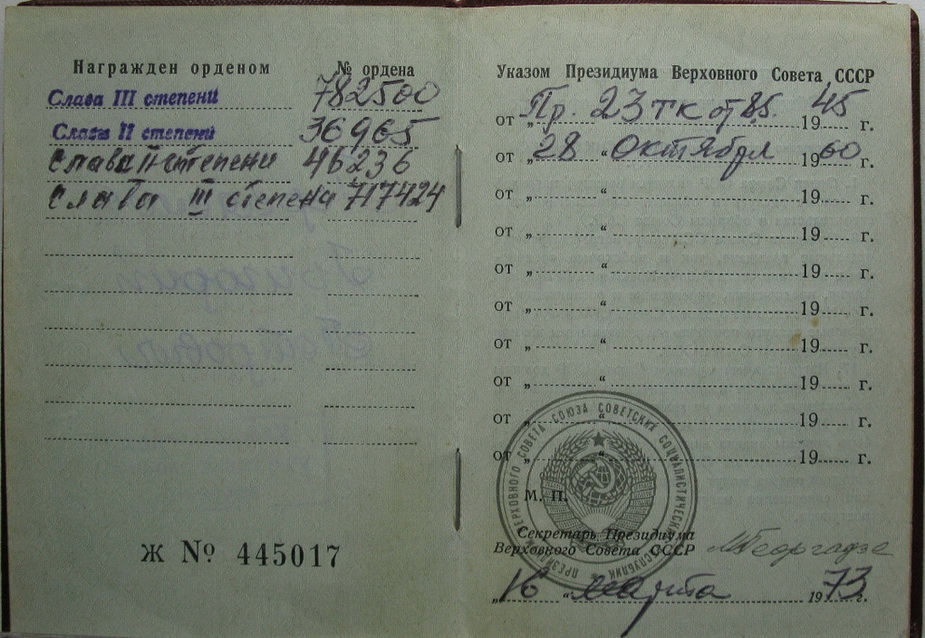 Награжден орденом № ордена
Слава III степени 782500
Слава II степени 36965
Слава II степени 46236
Слава III степена 717424
Ж № 445017
Указом Президиума Верховного Совета СССР
от „ Пр. 23 тк от 8.5. 1945 г.
от „28 “ Октября 1960 г.
от „ “ 19 г.
от „ “ 19 г.
от „ “ 19 г.
от „ “ 19 г.
от „ “ 19 г.
от „ “ 19 г.
от „ “ 19 г.
от „ “ 19 г.
ПРЕЗИДИУМ ВЕРХОВНОГО СОВЕТА СОЮЗА СОВЕТСКИХ СОЦИАЛИСТИЧЕСКИХ РЕСПУБЛИК
М. П.
Секретарь Президиума
Верховного Совета СССР М.Георгадзе
„16 “ марта 1973 г.